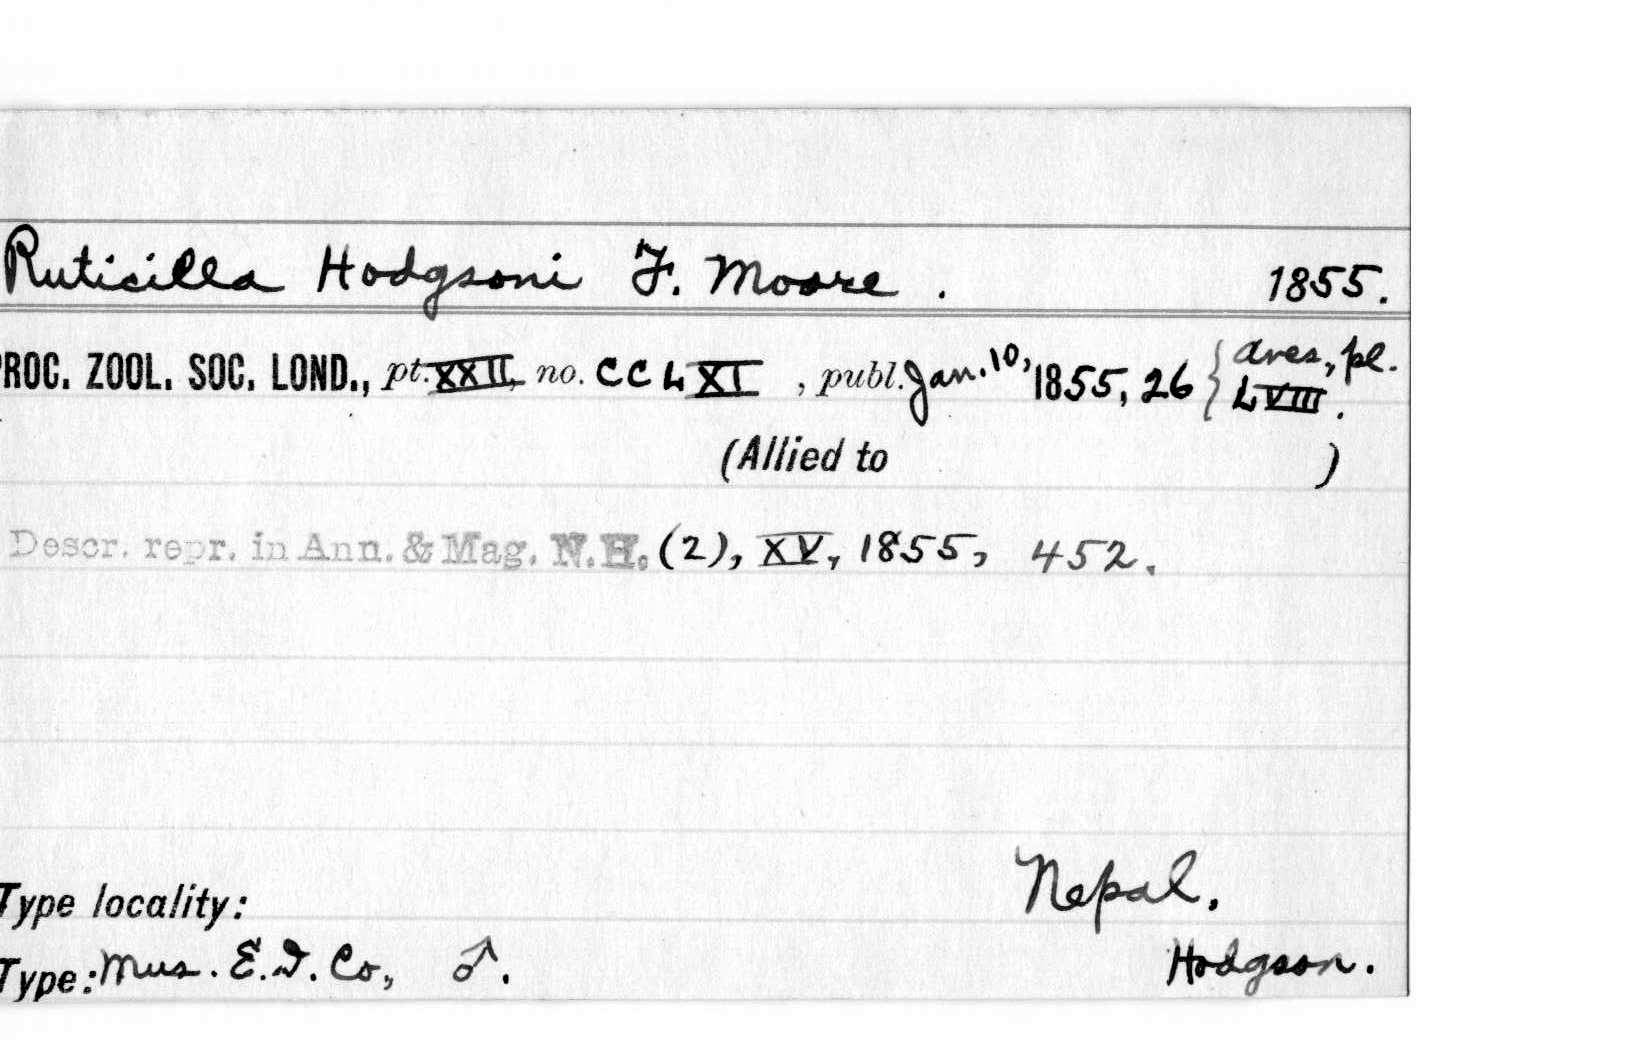 Ruticilla Hodgsoni F. Moore. 1855.
PROC. ZOOL. SOC. LOND., pt. XXII, no. CCLXI, publ. Jan. 10, 1855, 26 { Aves, pl. LVIII.
(Allied to )
Descr. repr. in Ann. & Mag. N.H. (2), XV, 1855, 452.
Type locality: Nepal.
Type: Mus. E.I. Co, ♂. Hodgson.